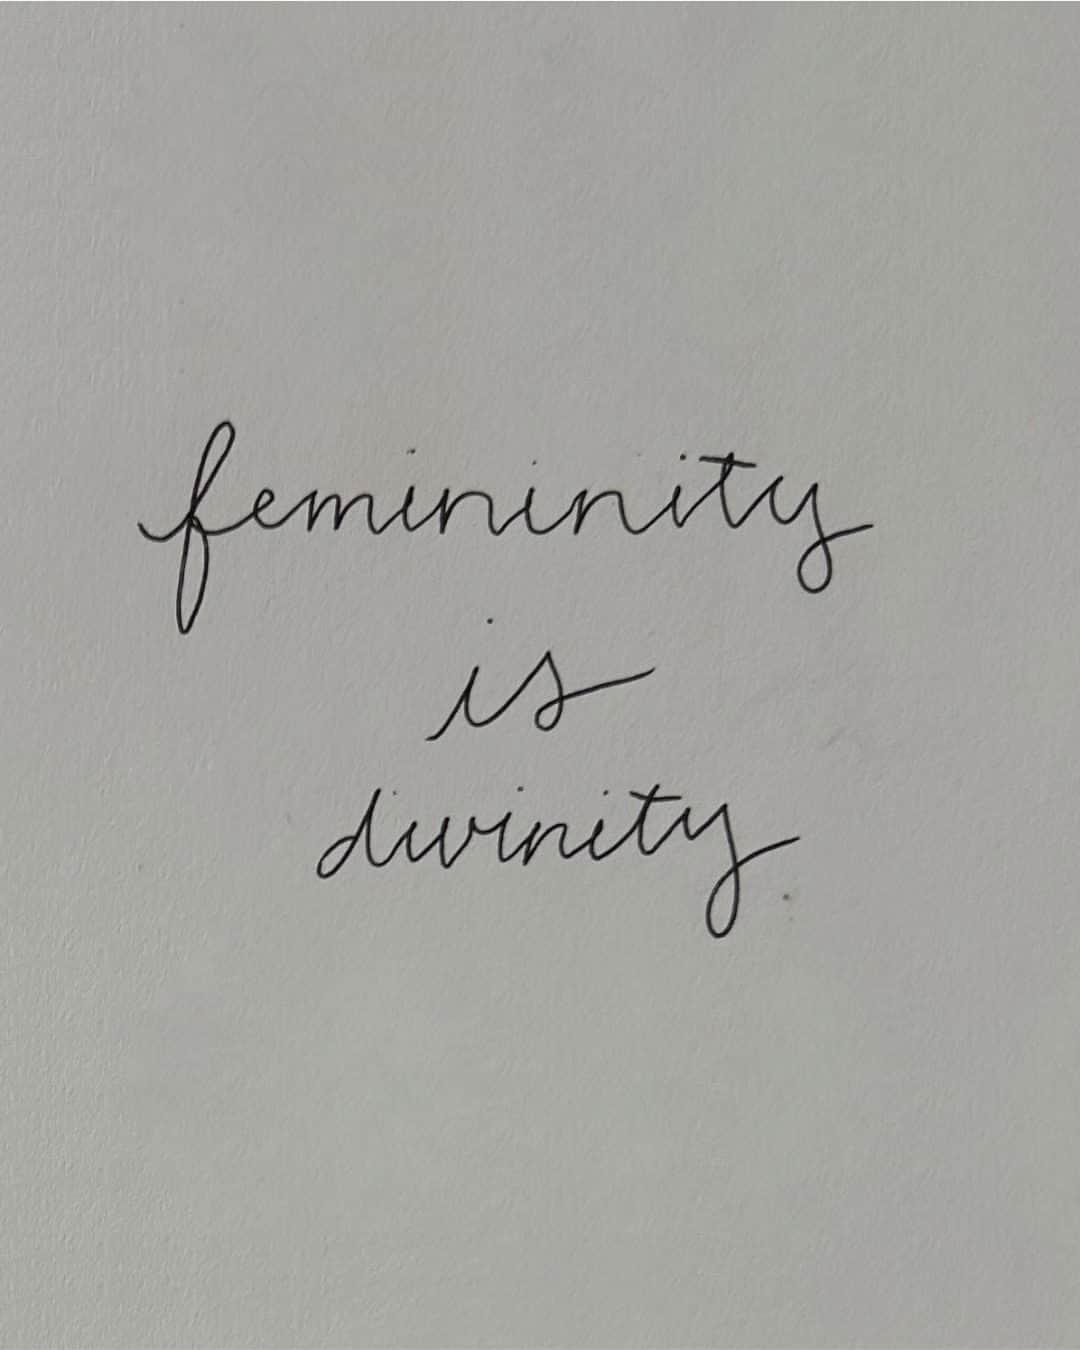 femininity
is
divinity.